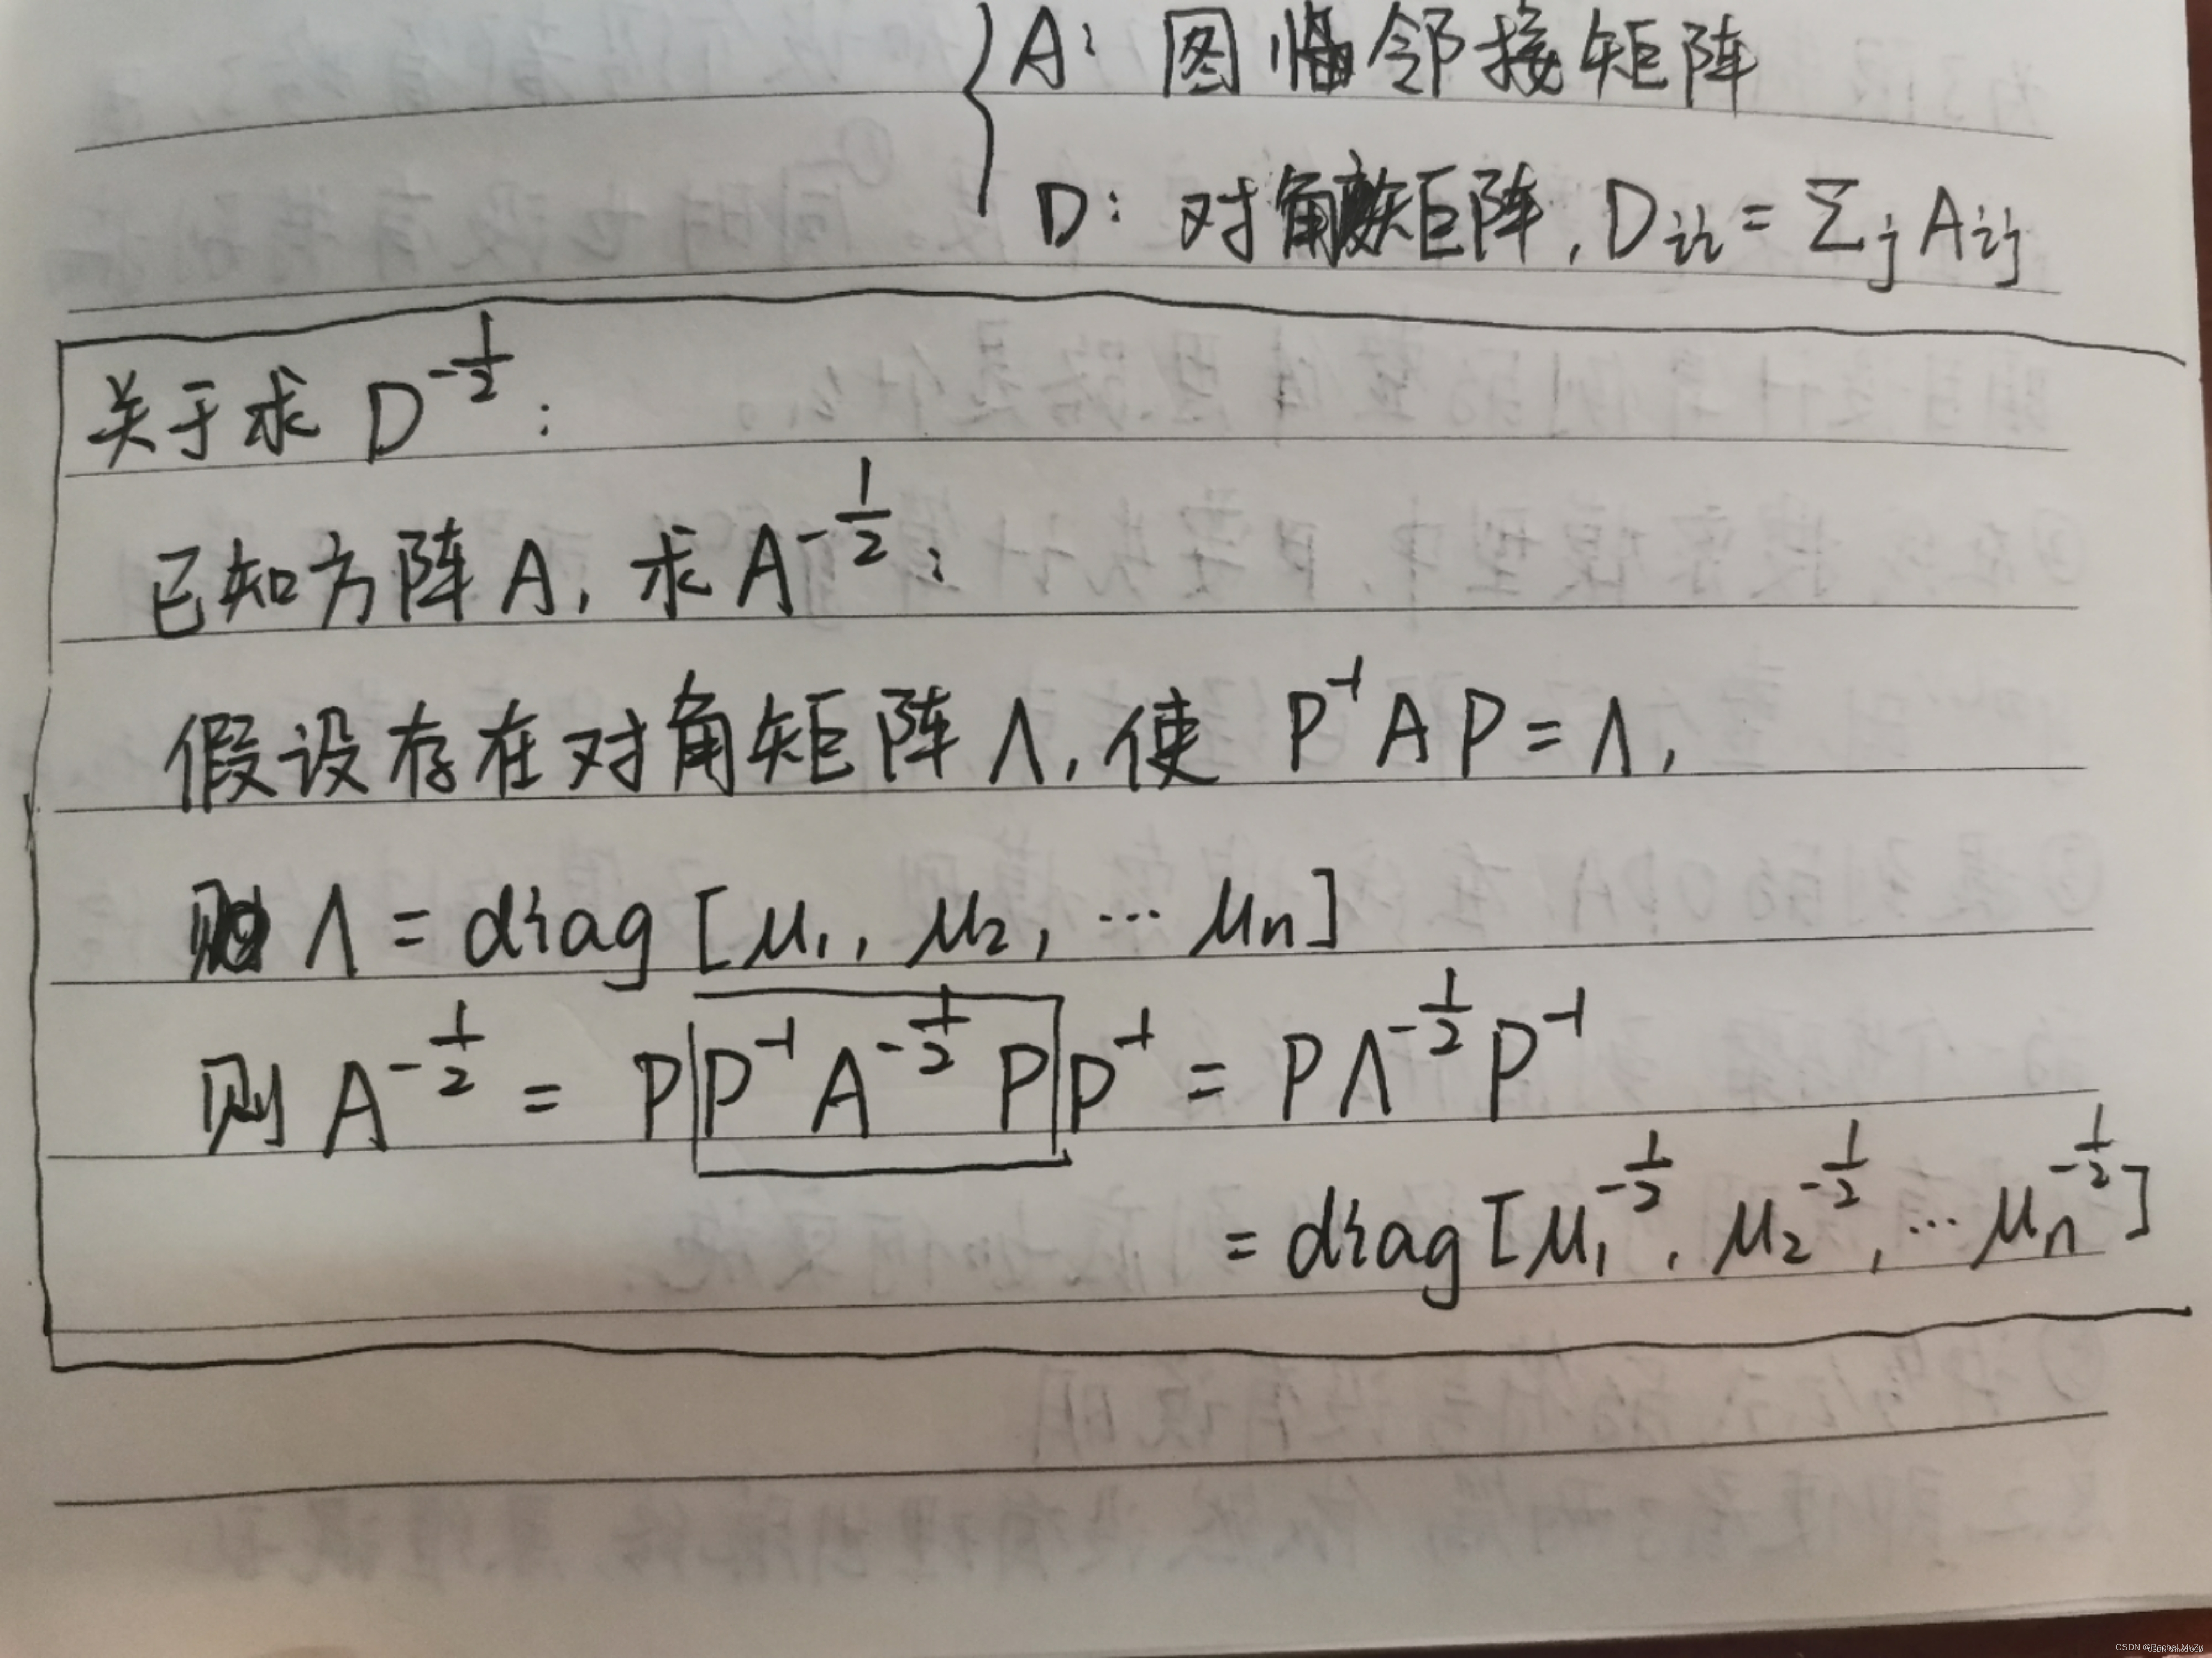 A: 图邻接矩阵
D: 对角矩阵, D_{ii} = Σ_j A_{ij}
关于求 D^{-\frac{1}{2}}:
已知方阵 A, 求 A^{-\frac{1}{2}}:
假设存在对角矩阵 Λ, 使 P^{-1} A P = Λ,
则 Λ = diag [μ_1, μ_2, … μ_n]
则 A^{-\frac{1}{2}} = P P^{-1} A^{-\frac{1}{2}} P P^{-1} = P Λ^{-\frac{1}{2}} P^{-1}
= diag [μ_1^{-\frac{1}{2}}, μ_2^{-\frac{1}{2}}, … μ_n^{-\frac{1}{2}}]
CSDN @Rachel MuZy